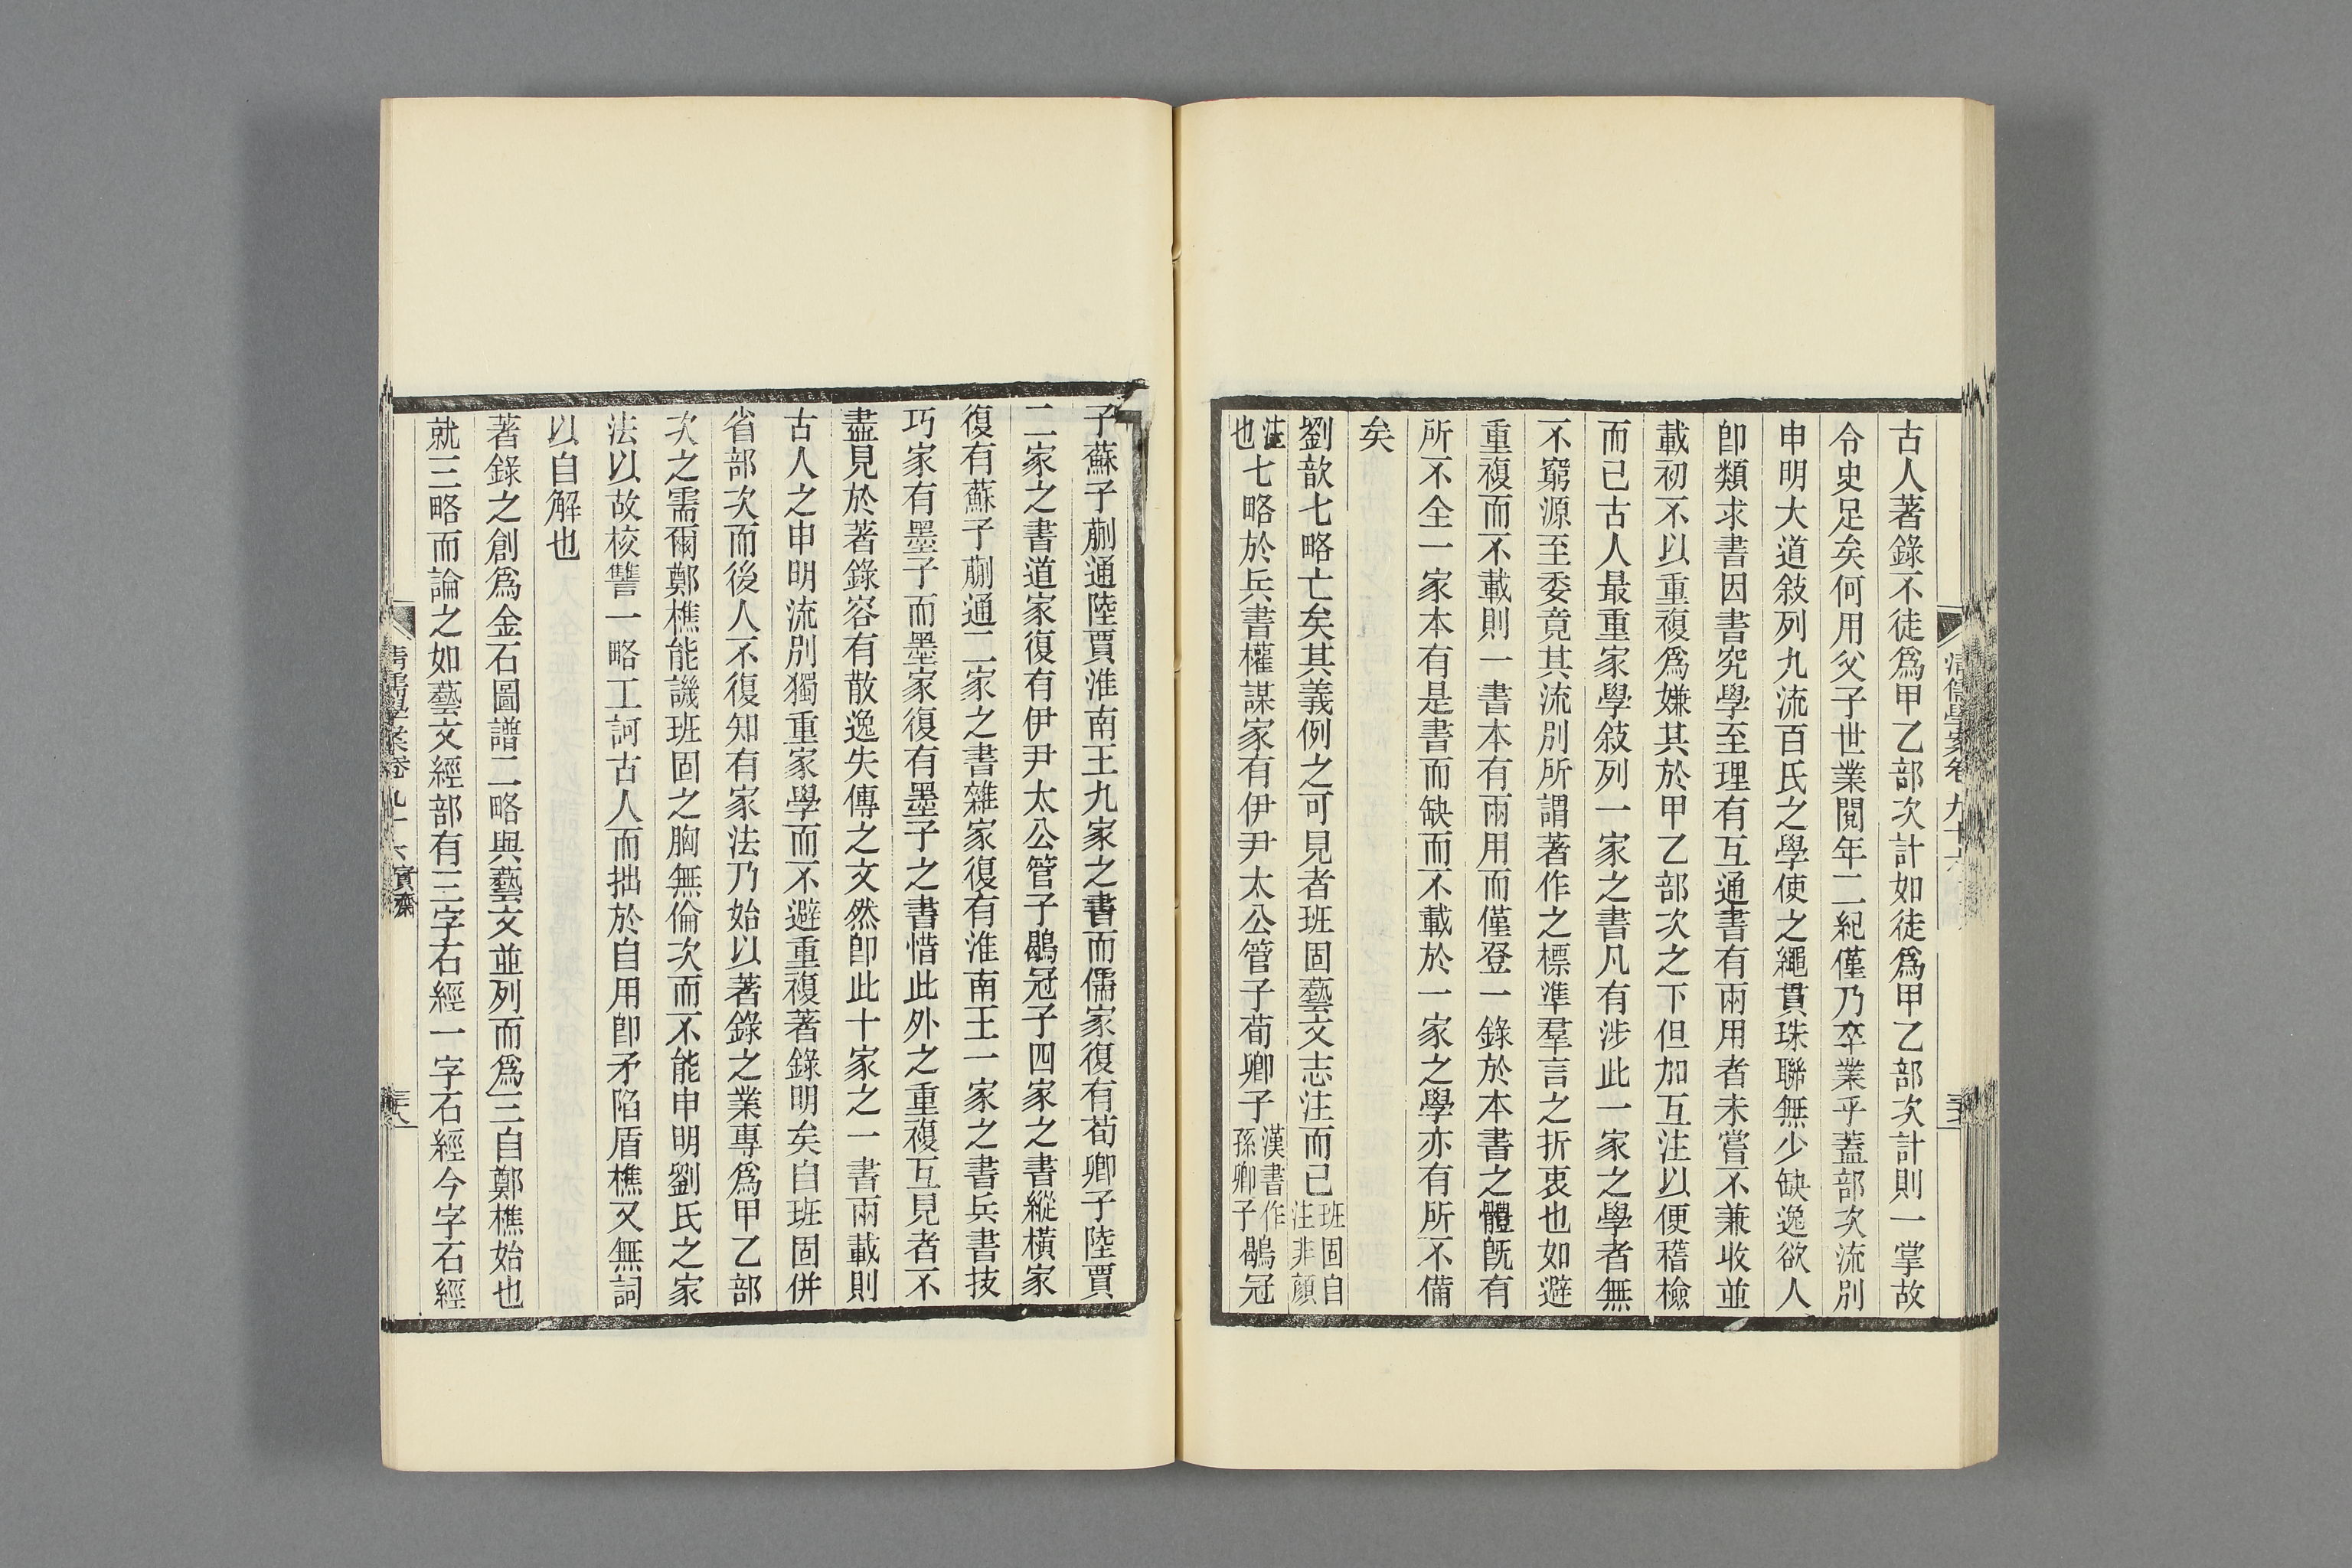 古人著錄不徒爲甲乙部次計如徒爲甲乙部次計則一掌故
令史足矣何用父子世業閱年二紀僅乃卒業乎蓋部次流別
申明大道敍列九流百氏之學使之繩貫珠聯無少缺逸欲人
卽類求書因書究學至理有互通書有兩用者未嘗不兼收並
載初不以重複爲嫌其於甲乙部次之下但加互注以便稽檢
而已古人最重家學敍列一家之書凡有涉此一家之學者無
不窮源至委竟其流別所謂著作之標準羣言之折衷也如避
重複而不載則一書本有兩用而僅登一錄於本書之體旣有
所不全一家本有是書而缺而不載於一家之學亦有所不備
矣
劉歆七略亡矣其義例之可見者班固藝文志注而已班固自注非顏
注也七略於兵書權謀家有伊尹太公管子荀卿子漢書作孫卿子鶡冠
子蘇子蒯通陸賈淮南王九家之書而儒家復有荀卿子陸賈
二家之書道家復有伊尹太公管子鶡冠子四家之書縱橫家
復有蘇子蒯通二家之書雜家復有淮南王一家之書兵書技
巧家有墨子而墨家復有墨子之書惜此外之重複互見者不
盡見於著錄容有散逸失傳之文然卽此十家之一書兩載則
古人之申明流別獨重家學而不避重複著錄明矣自班固併
省部次而後人不復知有家法乃始以著錄之業專爲甲乙部
次之需爾鄭樵能譏班固之胸無倫次而不能申明劉氏之家
法以故校讐一略工訶古人而拙於自用卽矛陷盾樵又無詞
以自解也
著錄之創爲金石圖譜二略與藝文並列而爲三自鄭樵始也
就三略而論之如藝文經部有三字石經一字石經今字石經
清儒學案卷九十六
清儒學案卷九十六 實齋